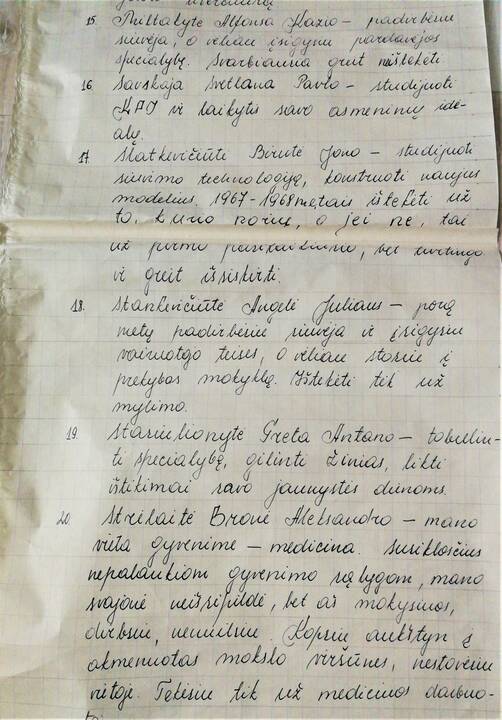 15. Miltakytė Alfonsa Kazio – padirbėsiu
siuvėja, o vėliau įsigysiu pardavėjos
specialybę. Svarbiausia greit neištekėti.
16. Savskaja Svetlana Pavlo – studijuoti
KPI ir laikytis savo asmeninių ide-
alų.
17. Slatkevičiūtė Birutė Jono – studijuoti
siuvimo technologiją, konstruoti naujus
modelius. 1967-1968 metais ištekėti už
to, kurio noriu, o jei ne, tai
už pirmo pasitaikiusio, bet turtingo
ir greit išsiskirti.
18. Stankevičiūtė Angelė Juliaus – porą
metų padirbėsiu siuvėja ir įsigysiu
vairuotojo teises, o vėliau stosiu į
prekybos mokyklą. Ištekėti tik už
mylimo.
19. Stasiulionytė Greta Antano – tobulin-
ti specialybę, gilinti žinias, likti
ištikimai savo jaunystės dienoms.
20. Strėlaitė Bronė Aleksandro – mano
vieta gyvenime – medicina. Susiklosčius
nepalankiom gyvenimo sąlygom, mano
svajonė neišsipildė, bet aš mokysiuos,
dirbsiu, nenusilsiu. Kopsiu aukštyn į
akmenuotas mokslo viršūnes, nestovėsiu
vietoje. Tekėsiu tik už medicinos darbuo-